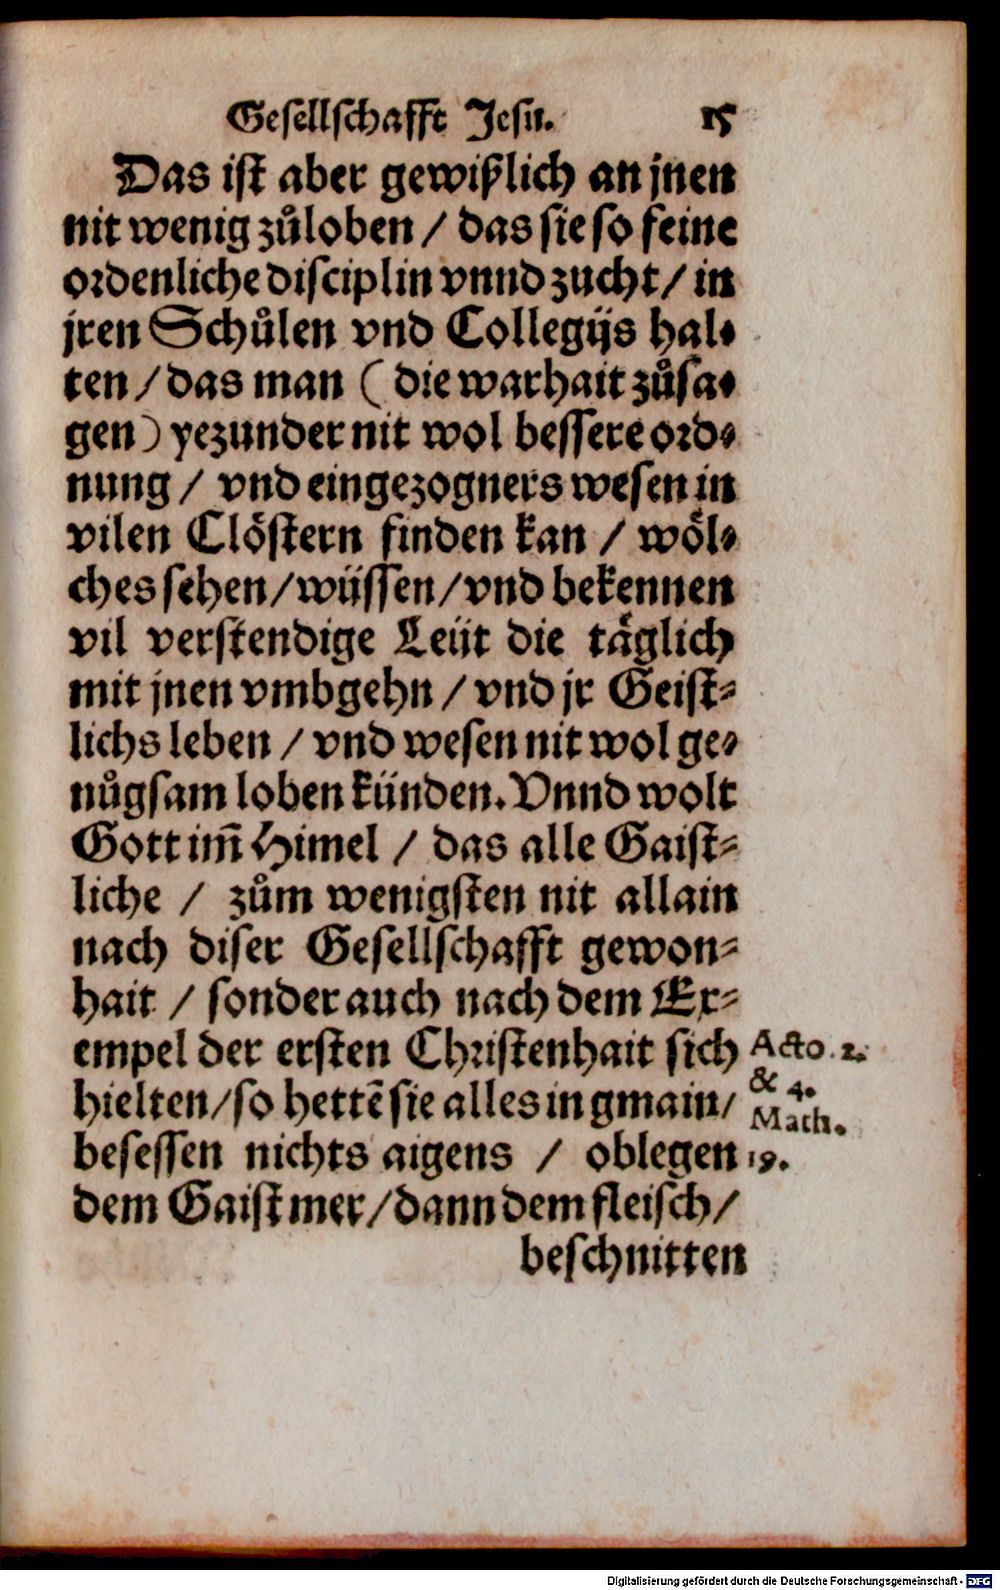 Geſellſchafft Jeſu. 15
Das iſt aber gewißlich an jnen
nit wenig zůloben / das ſie ſo feine
ordenliche diſciplin vnnd zucht / in
jren Schůlen vnd Collegijs hal⸗
ten / das man ( die warhait zůſa⸗
gen ) yezunder nit wol beſſere ord⸗
nung / vnd eingezogners weſen in
vilen Clöſtern finden kan / wöl⸗
ches ſehen / wüſſen / vnd bekennen
vil verſtendige Leüt die täglich
mit jnen vmbgehn / vnd jr Geiſt⸗
lichs leben / vnd weſen nit wol ge⸗
nůgſam loben künden. Vnnd wolt
Gott im̃ Himel / das alle Gaiſt⸗
liche / zům wenigſten nit allain
nach diſer Geſellſchafft gewon⸗
hait / ſonder auch nach dem Ex⸗
empel der erſten Chriſtenhait ſich
hielten / ſo hettẽ ſie alles in gmain /
beſeſſen nichts aigens / oblegen
dem Gaiſt mer / dann dem fleiſch /
beſchnitten
Acto. 2.
& 4.
Math.
19.
Digitalisierung gefördert durch die Deutsche Forschungsgemeinschaft - DFG